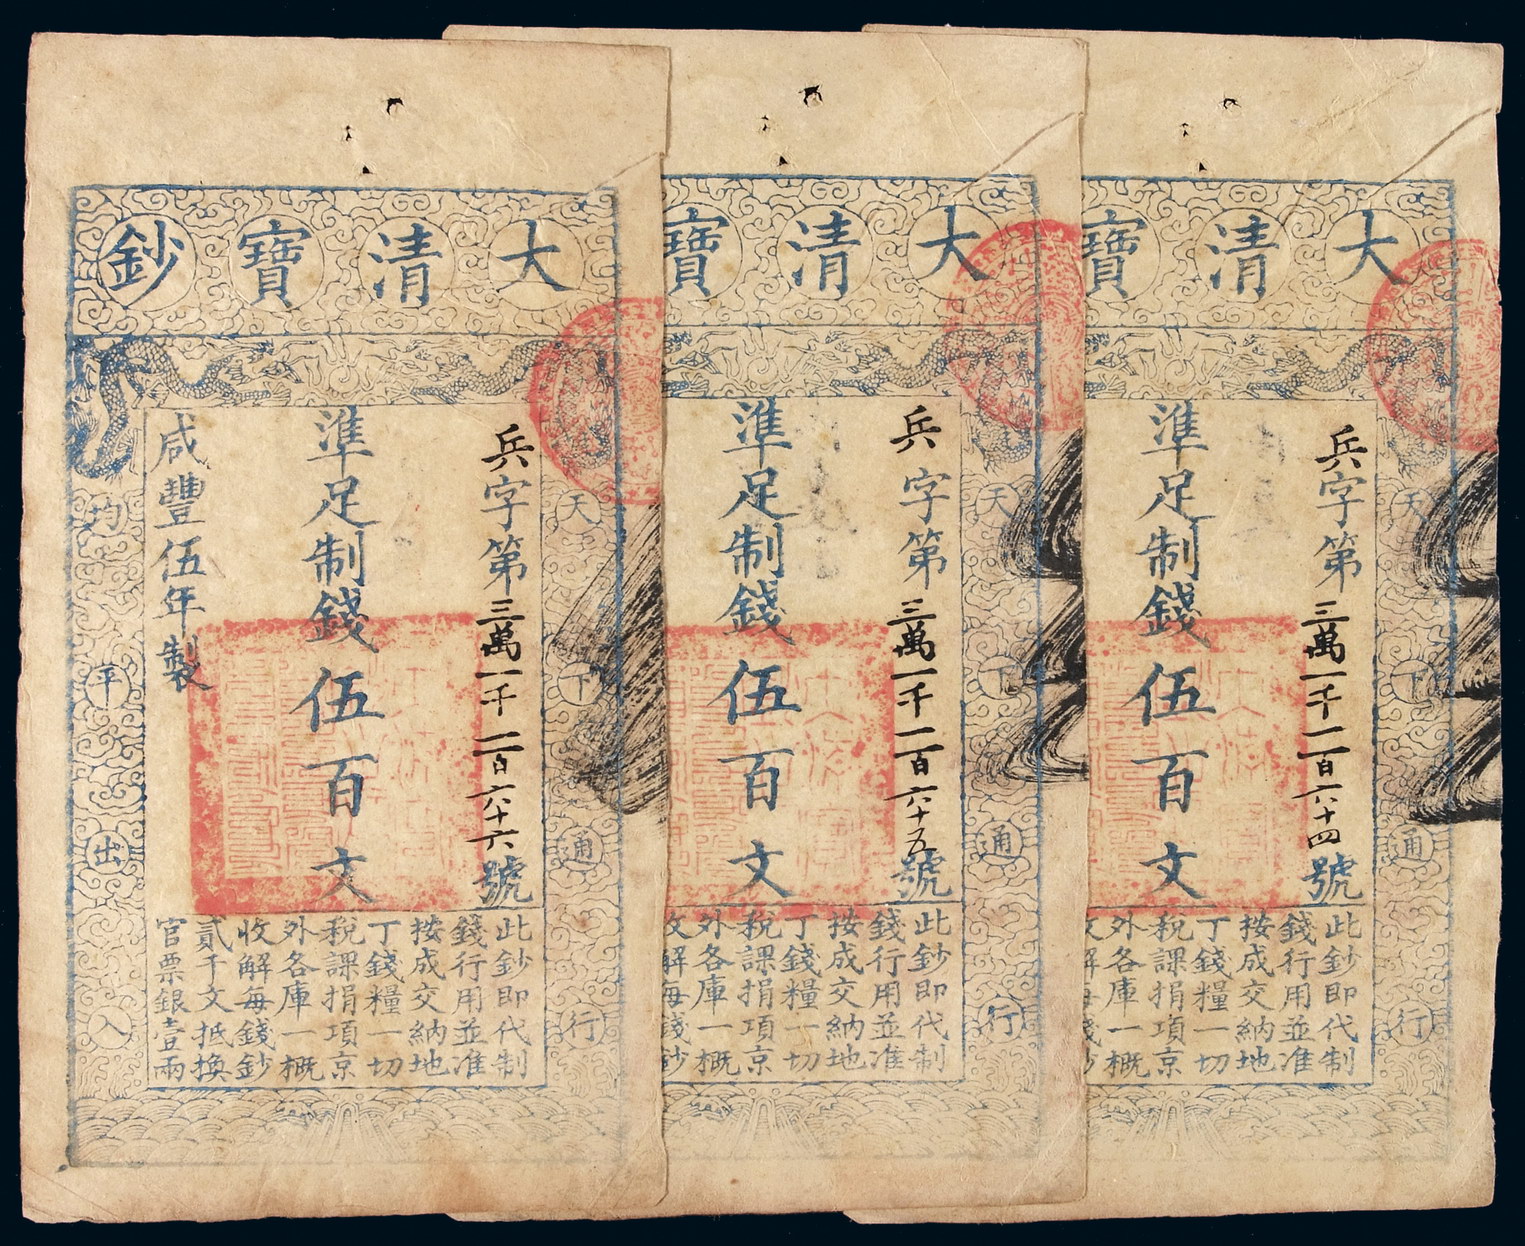 大清寶鈔
兵字第三萬一千一百六十六號
準足制錢伍百文
咸豐伍年製
天下通行
均平出入
此鈔即代制
錢行用並准
按成交納地
丁錢糧一切
稅課捐項京
外各庫一概
收解每錢鈔
貳千文抵換
官票銀壹兩
大清寶
兵字第三萬一千一百六十五號
準足制錢伍百文
天下通行
此鈔即代制
錢行用並准
按成交納地
丁錢糧一切
稅課捐項京
外各庫一概
收解每錢鈔
大清寶
兵字第三萬一千一百六十四號
準足制錢伍百文
天下通行
此鈔即代制
錢行用並准
按成交納地
丁錢糧一切
稅課捐項京
外各庫一概